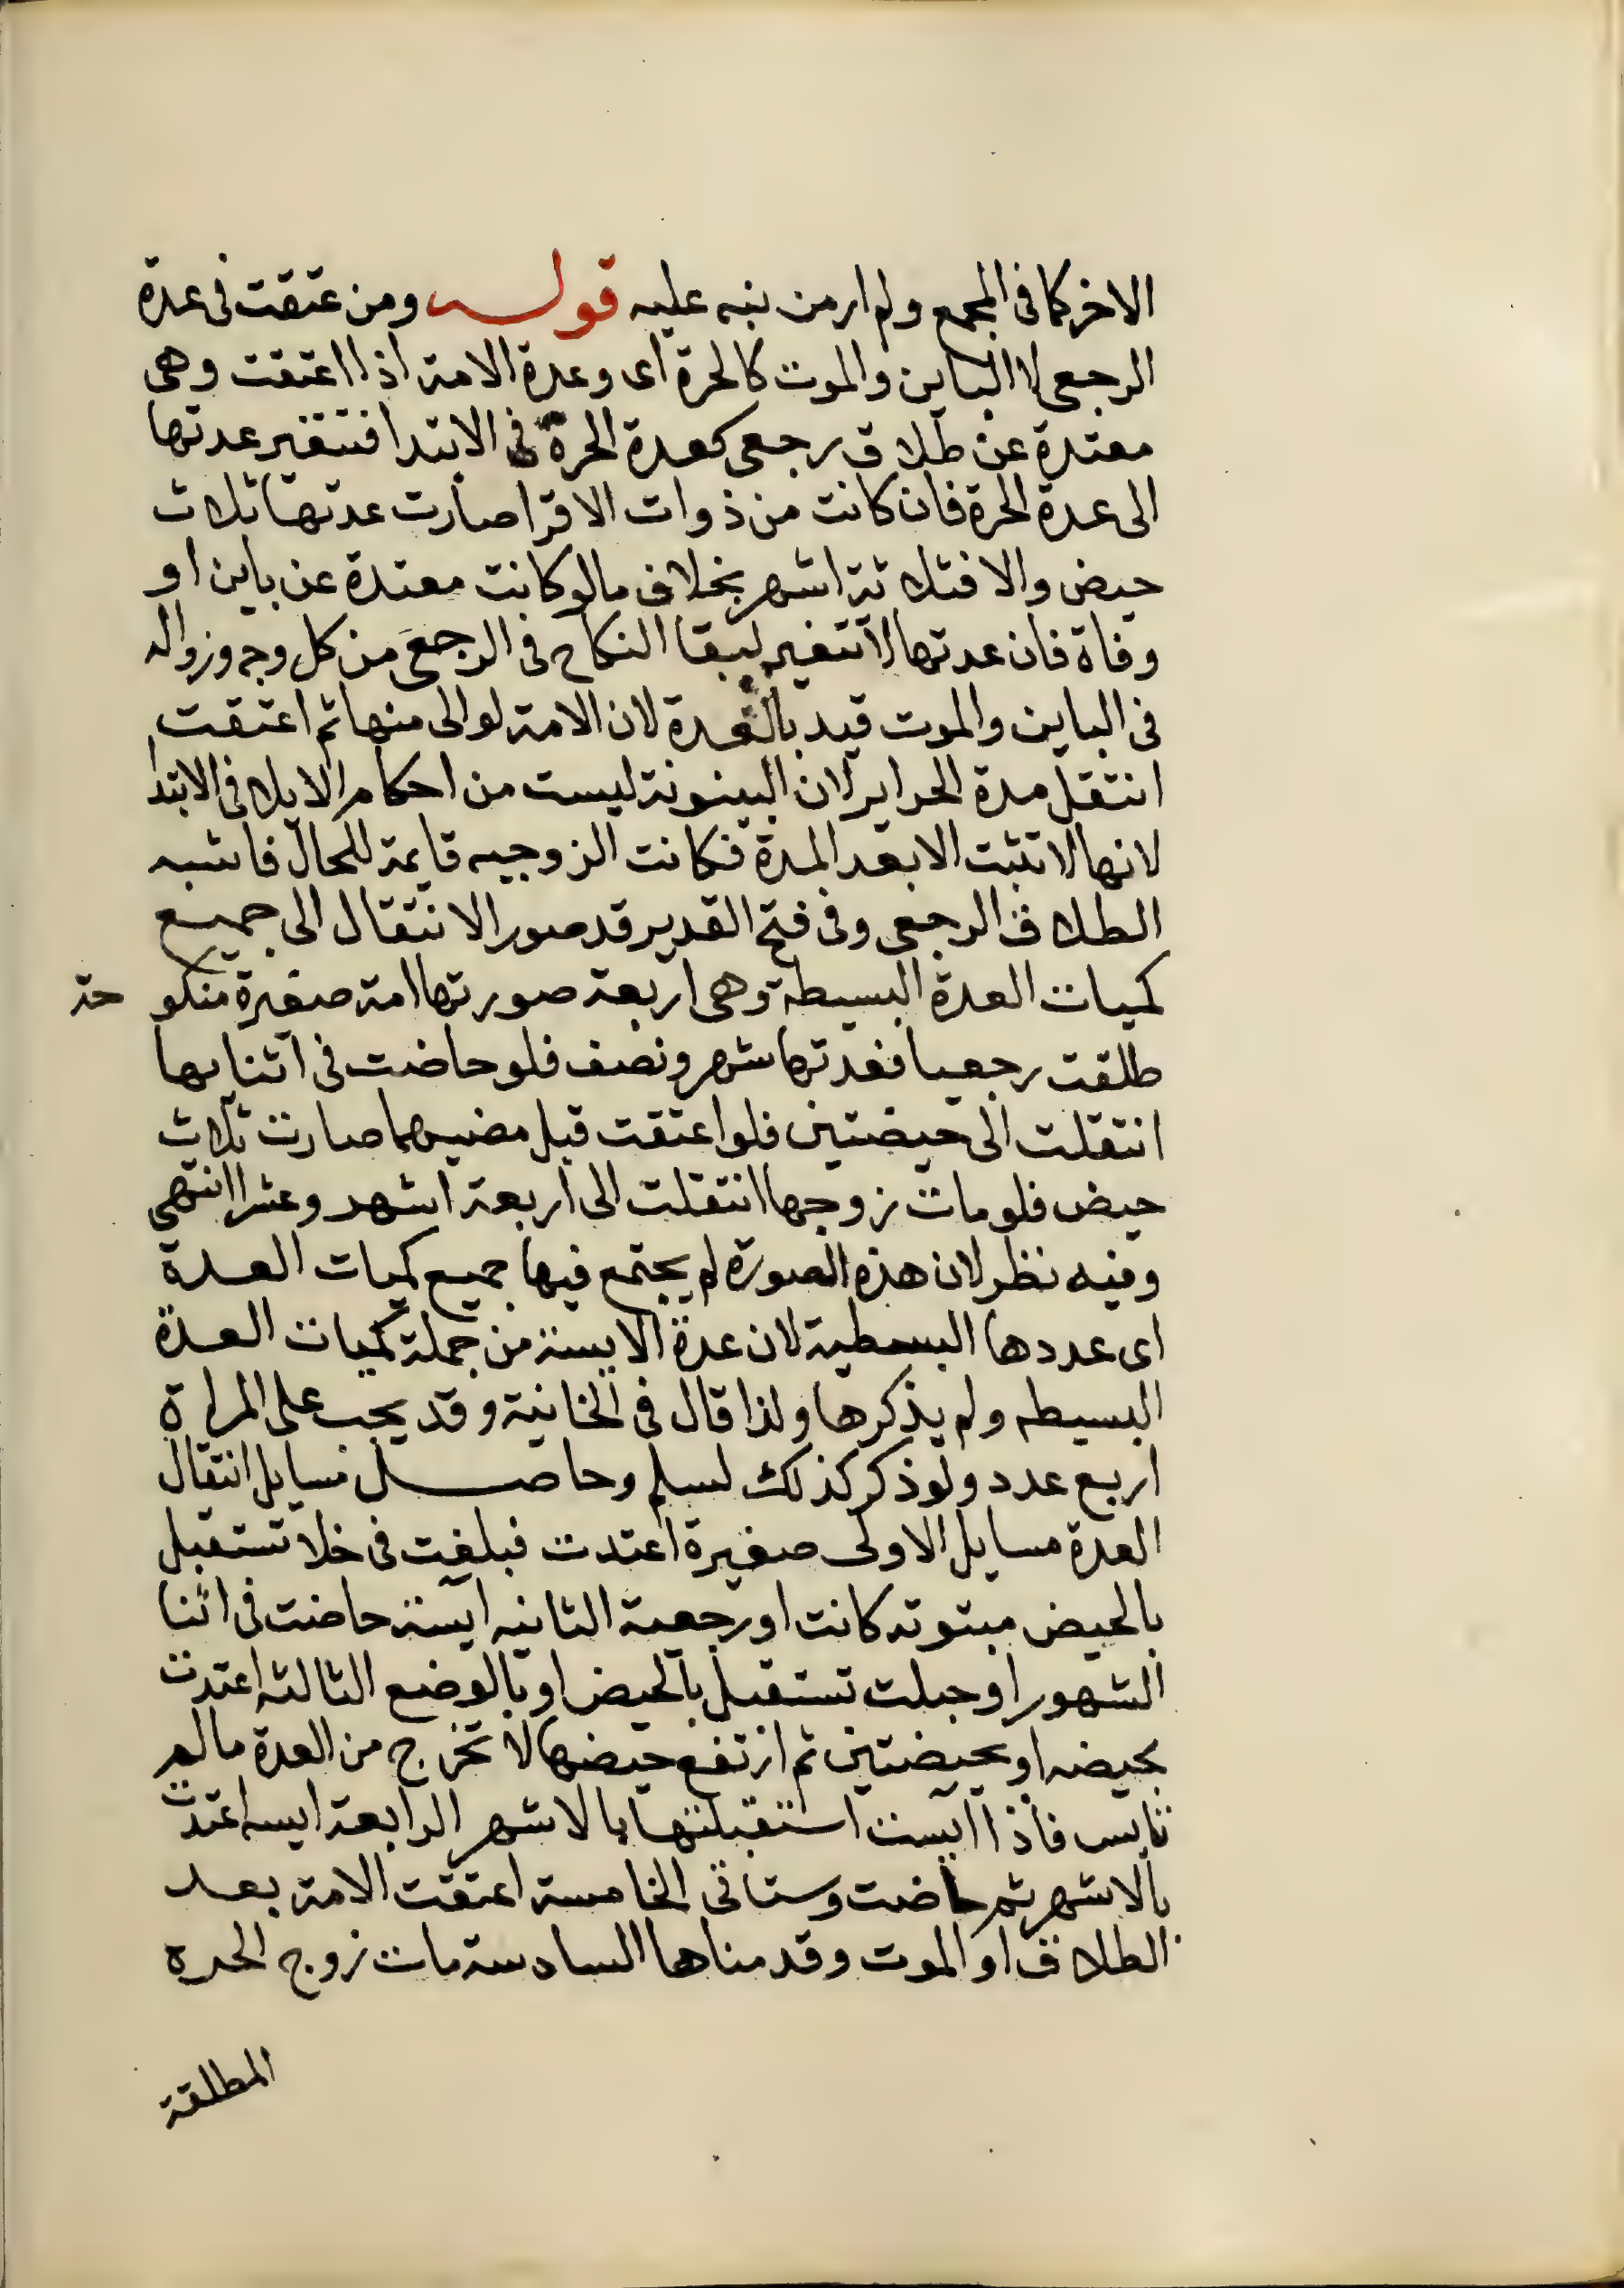 الاخر كما فى المجمع ولم ار من نبه عليه قوله ومن عتقت فى عدة
الرجعى لا الباين والموت كالحرة اى وعدة الامة اذا اعتقت وهى
معتدة عن طلاق رجعى كعدة الحرة فى الابتدا فتتغير عدتها
الى عدة الحرة فان كانت من ذوات الاقرا صارت عدتها ثلاث
حيض والا فثلاثة اشهر بخلاف مالو كانت معتدة عن باين او
وفاة فان عدتها لا تتغير لبقا النكاح فى الرجعى من كل وجه وزواله
فى الباين والموت قيد بالعدة لان الامة لو الى منها ثم اعتقت
انتقل مدة الحراير لان البينونة ليست من احكام الايلا فى الابتدا
لانها لا تثبت الا بعد المدة فكانت الزوجيه قايمة للحال فاشبه
الطلاق الرجعى وفى فتح القدير قد صور الانتقال الى جميع
كميات العدة البسيطة وهى اربعة صورتها امة صغيرة منكو حة
طلقت رجعيا فعدتها شهر ونصف فلو حاضت فى اثنايها
انتقلت الى حيضتين فلو اعتقت قبل مضيهما صارت ثلاث
حيض فلو مات زوجها انتقلت الى اربعة اشهر وعشرا انتهى
وفيه نظر لان هذه الصورة لم يجتمع فيها جميع كميات العدة
اى عددها البسطية لان عدة الايسة من جملة كميات العدة
البسيطه ولم يذكرها ولذا قال فى الخانية وقد يجب على المراة
اربع عدد ولو ذكر كذلك لسلم وحاصل مسايل انتقال
العدة مسايل الاولى صغيرة اعتدت فبلغت فى خلا تستقبل
بالحيض مبتوتة كانت او رجعية الثانيه ايسة حاضت فى اثنا
الشهور او حبلت تستقبل بالحيض او بالوضع الثالثه اعتدت
بحيضه او بحيضتين ثم ارتفع حيضها لا تخرج من العدة مالم
تايس فاذا اايست استقبلتها بالاشهر الرابعة ايسه اعتدت
بالاشهر ثم حاضت وستاتى الخامسة اعتقت الامة بعد
الطلاق او الموت وقدمناها السادسة مات زوج الحره
المطلقة